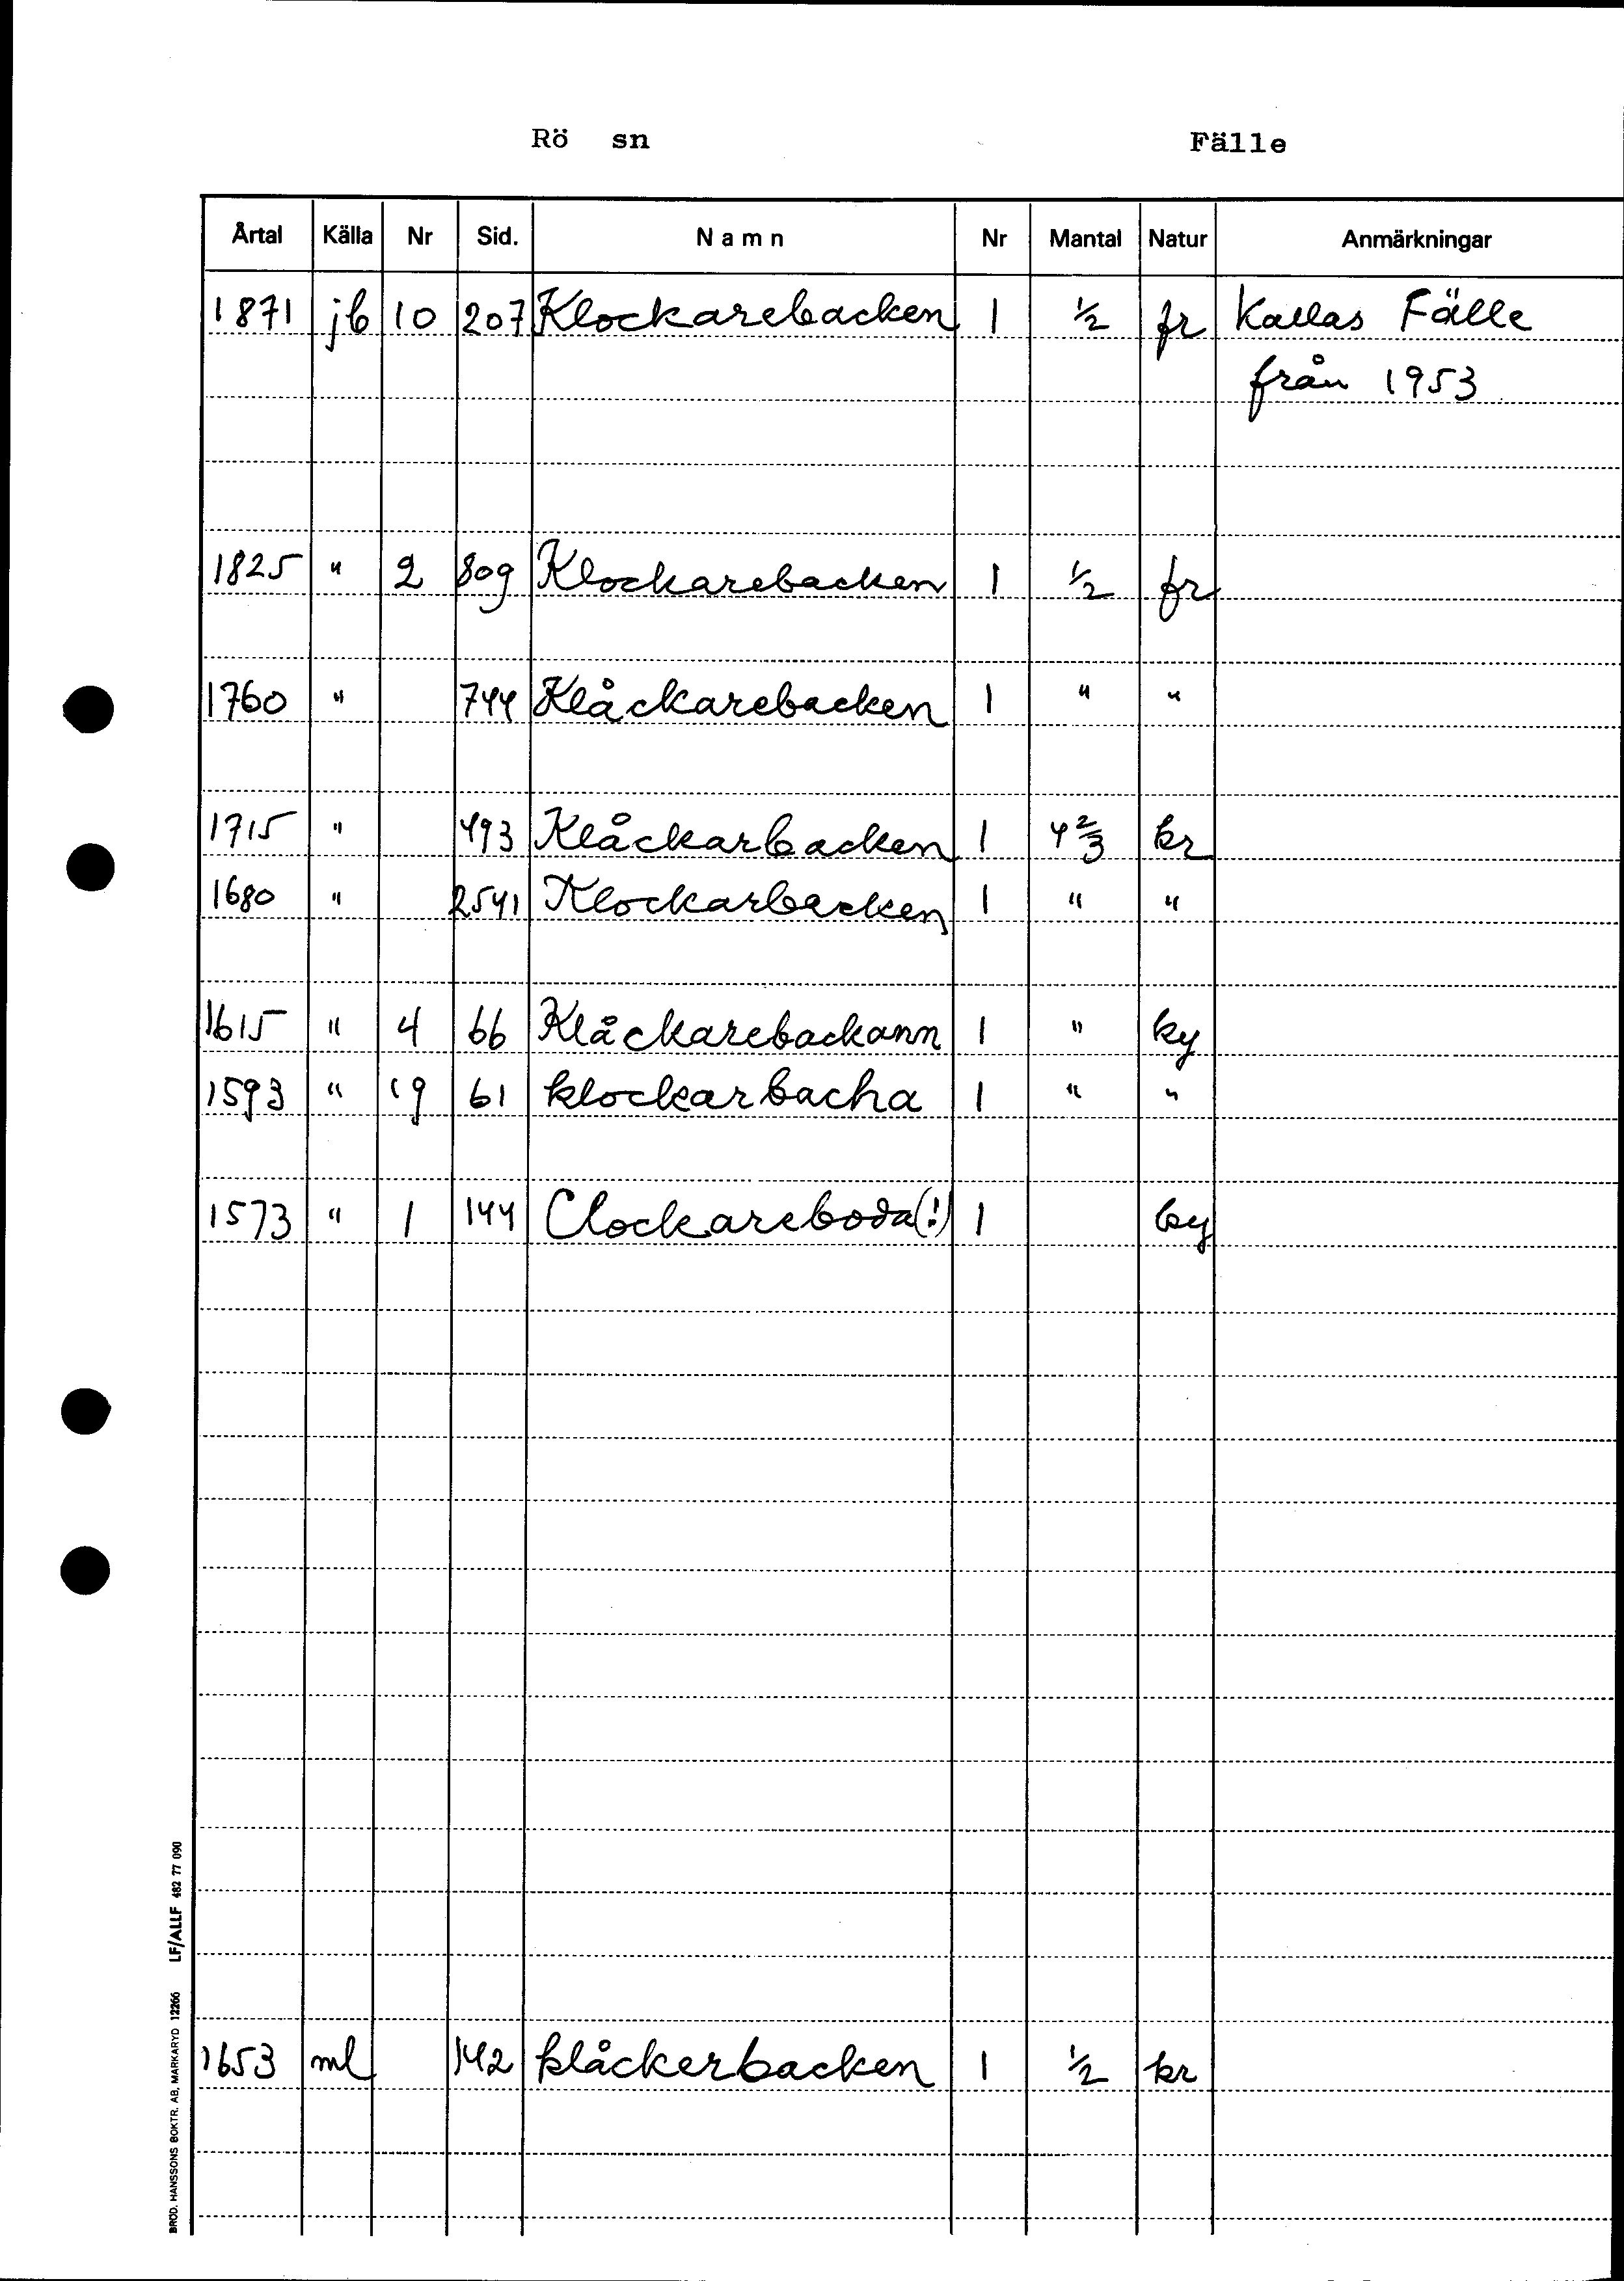 Rö sn Fälle
Årtal Källa Nr Sid. Namn Nr Mantal Natur Anmärkningar
1871 jb 10 207 Klockarebacken 1 ½ fr Kallas Fälle
från 1953
1825 " 2 809 Klockarebacken 1 ½ fr
1760 " 744 Klåckarebacken 1 " "
1715 " 493 Klåckarbacken 1 4 ⅔ kr
1680 " 2541 Klockarbacken 1 " "
1615 " 4 66 Klåckarebackann 1 " ky
1593 " 19 61 klockarbacha 1 " "
1573 " 1 144 Clockareboda(!) 1 by
1653 ml 142 klåckerbacken 1 ½ kr
BROD. HANSSONS BOKTR. AB, MARKARYD 12266 LF/ALLF 482 77 090